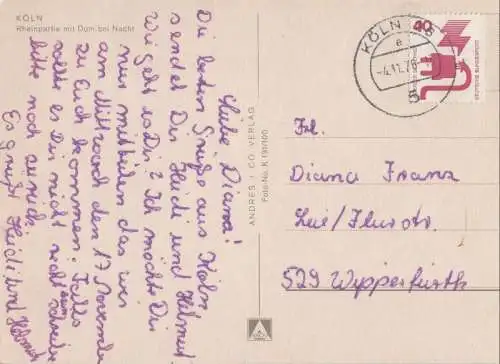 KÖLN
Rheinpartie mit Dom bei Nacht
Liebe Diana!
Die besten Grüße aus Köln
sendet Dir Heidi und Helmut.
Wie geht es Dir? Ich möchte Dir
nur mitteilen das wir
am Mittwoch den 17 November
zu Euch kommen. Falls
sollte es Dir nicht recht sein
bitte noch zurück.
Es grüßt Heidi und Helmut
ANDRES + CO. VERLAG
Foto-No. K 130/100
KÖLN
a
-4.11.76
5
40
DEUTSCHE BUNDESPOST
Frl.
Diana Franz
529 Wipperfürth